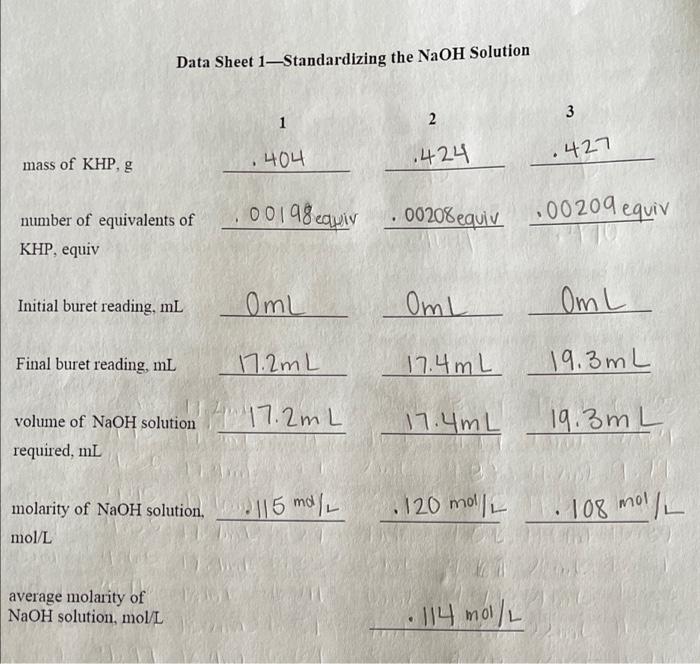 Data Sheet 1—Standardizing the NaOH Solution
1 2 3
mass of KHP, g .404 .424 .427
number of equivalents of .00198 equiv .00208 equiv .00209 equiv
KHP, equiv
Initial buret reading, mL 0mL 0mL 0mL
Final buret reading, mL 17.2mL 17.4mL 19.3mL
volume of NaOH solution 17.2mL 17.4mL 19.3mL
required, mL
molarity of NaOH solution, .115 mol/L .120 mol/L .108 mol/L
mol/L
average molarity of
NaOH solution, mol/L .114 mol/L